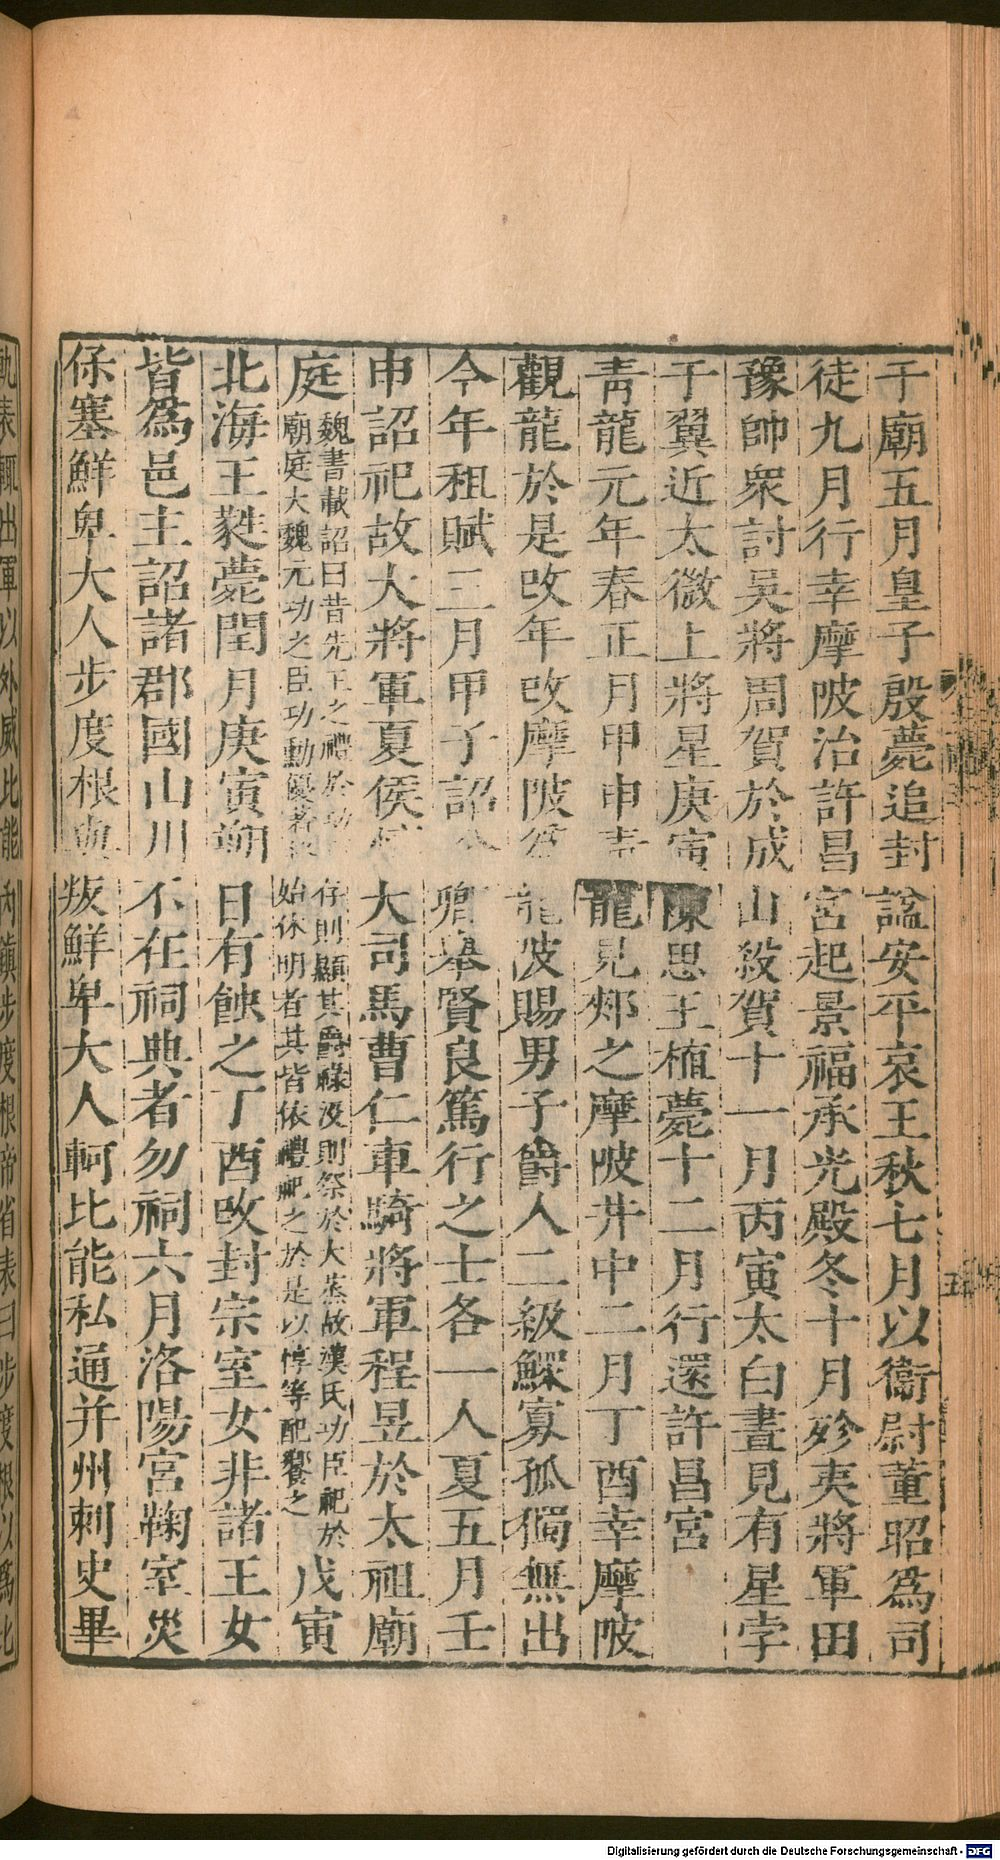 于廟五月皇子殷薨追封諡安平哀王秋七月以衞尉董昭爲司
徒九月行幸摩陂治許昌宮起景福承光殿冬十月殄夷將軍田
豫帥衆討吳將周賀於成山殺賀十一月丙寅太白晝見有星孛
于翼近太微上將星庚寅陳思王植薨十二月行還許昌宮
青龍元年春正月甲申青龍見郟之摩陂井中二月丁酉幸摩陂
觀龍於是改年改摩陂爲龍陂賜男子爵人二級鰥寡孤獨無出
今年租賦三月甲子詔公卿舉賢良篤行之士各一人夏五月壬
申詔祀故大將軍夏侯惇大司馬曹仁車騎將軍程昱於太祖廟
庭
魏書載詔曰昔先王之禮於功
存則顯其爵祿沒則祭於大蒸故漢氏功臣祀於
廟庭大魏元功之臣功勳優著
始休明者其皆依禮祀之於是以惇等配饗之
戊寅
北海王蕤薨閏月庚寅朔日有蝕之丁酉改封宗室女非諸王女
皆爲邑主詔諸郡國山川不在祠典者勿祠六月洛陽宮鞠室災
保塞鮮卑大人步度根與叛鮮卑大人軻比能私通并州刺史畢
軌表輒出軍以外威比能內鎮步度根帝省表曰步度根以爲比
五
Digitalisierung gefördert durch die Deutsche Forschungsgemeinschaft - DFG